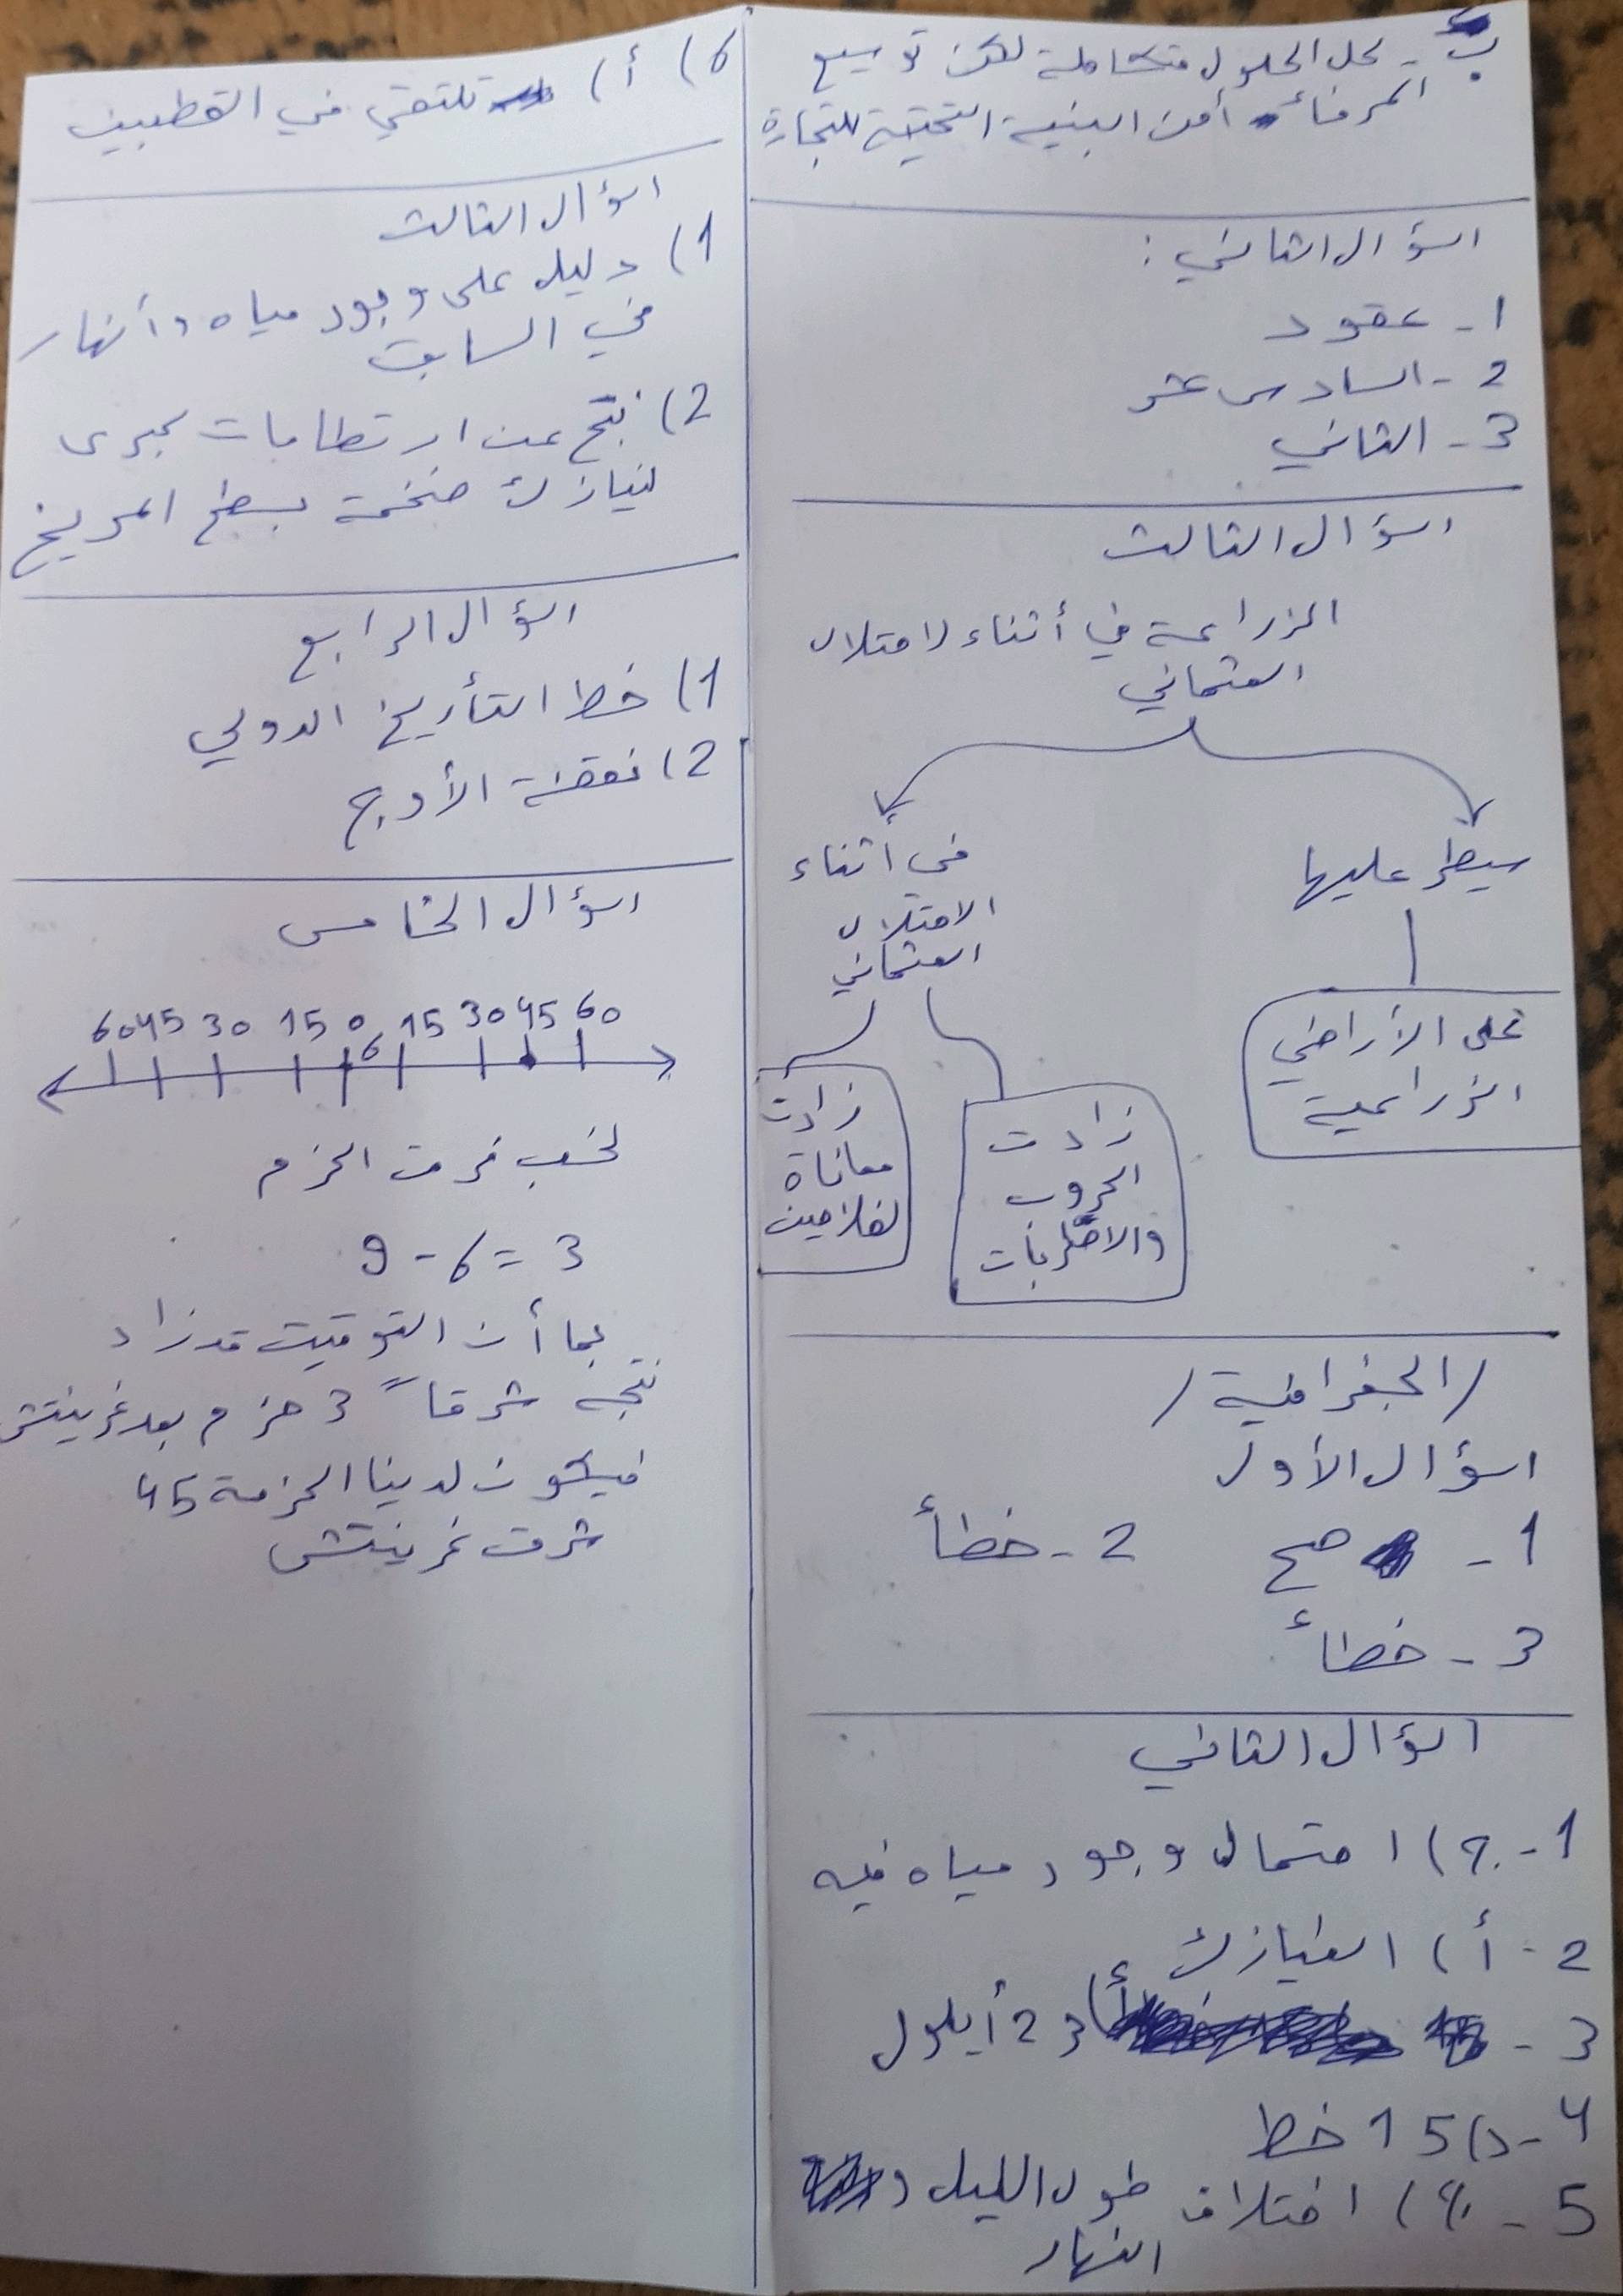 ب - كل الحلول متكاملة لكن توسيع
المرفأ أمن البنية التحتية للتجارة
السؤال الثاني :
1 - عقود
2 - السادس عشر
3 - الثاني
السؤال الثالث
الزراعة في أثناء الاحتلال
العثماني
سيطر عليها
على الأراضي
الزراعية
في أثناء
الاحتلال
العثماني
زادت
الحروب
والاضطربات
زادت
معاناة
لفلاحين
/ الجغرافية /
السؤال الأول
1 - صح 2 - خطأ
3 - خطأ
السؤال الثاني
1 - ج ) احتمال وجود مياه فيه
2 - أ ) النيازك
3 - أ) 23 أيلول
4 - د) 15 خط
5 - ج ) اختلاف طول الليل و
النهار
6 ) أ ) تلتقي في القطبين
السؤال الثالث
1 ) دليل على وجود مياه وأنهار
في السابق
2 ) نتج عن ارتطامات كبرى
لنيازك ضخمة بسطح المريخ
السؤال الرابع
1 ) خط التأريخ الدولي
2 ) نقطة الأوج
السؤال الخامس
60 45 30 15 0 15 30 45 60
6
نحسب فرق الحزم
9 - 6 = 3
بما أن التوقيت قد زاد
نتجه شرقاً 3 حزم بعد غرينتش
فيكون لدينا الحزمة 45
شرق غرينتش